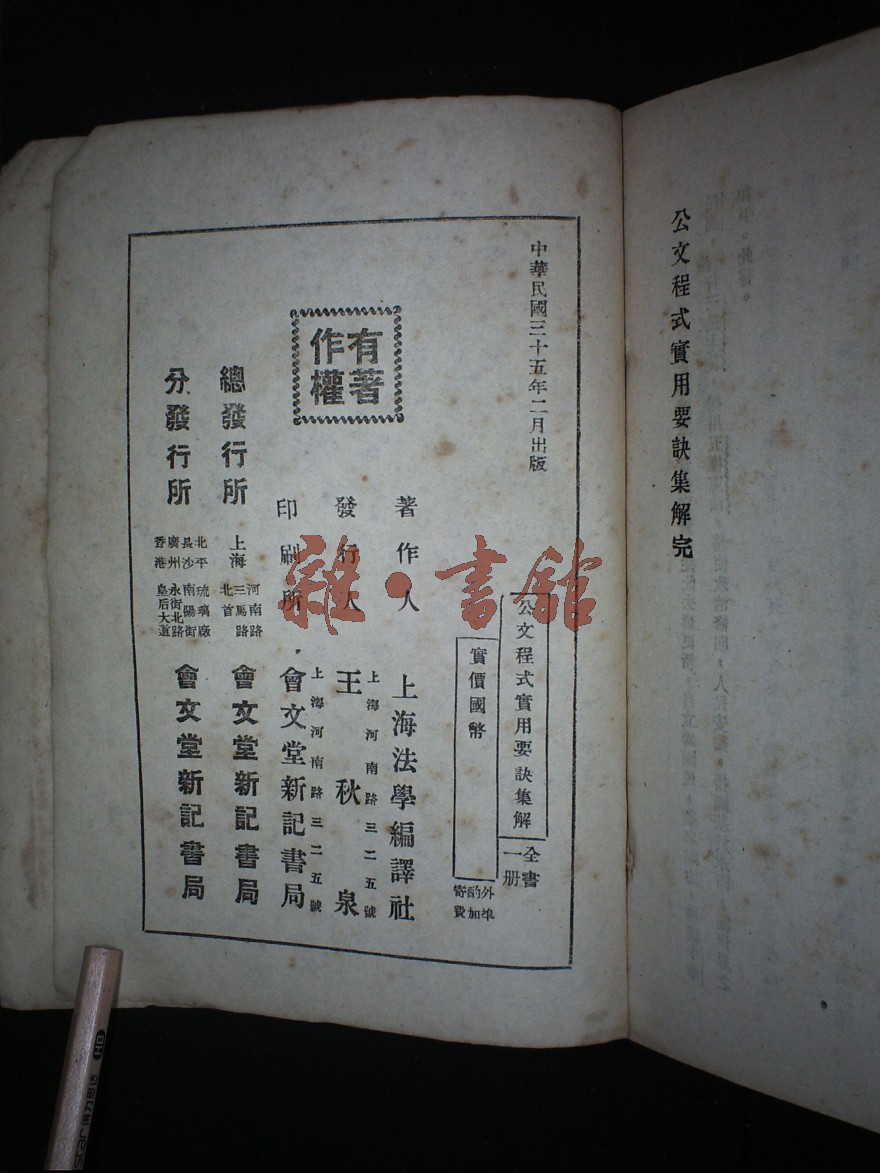 公文程式實用要訣集解完
中華民國三十五年二月出版
公文程式實用要訣集解
全書一册
實價國幣
外埠酌加寄費
有著作權
著作人 上海法學編譯社
發行人 王秋泉
上海河南路三二五號
印刷所 會文堂新記書局
上海河南路三二五號
總發行所 上海 河南路三馬路北首 會文堂新記書局
分發行所 北平 琉璃廠 長沙 南陽街 廣州 永漢北路 香港 皇后大道 會文堂新記書局
雜·書館
HB